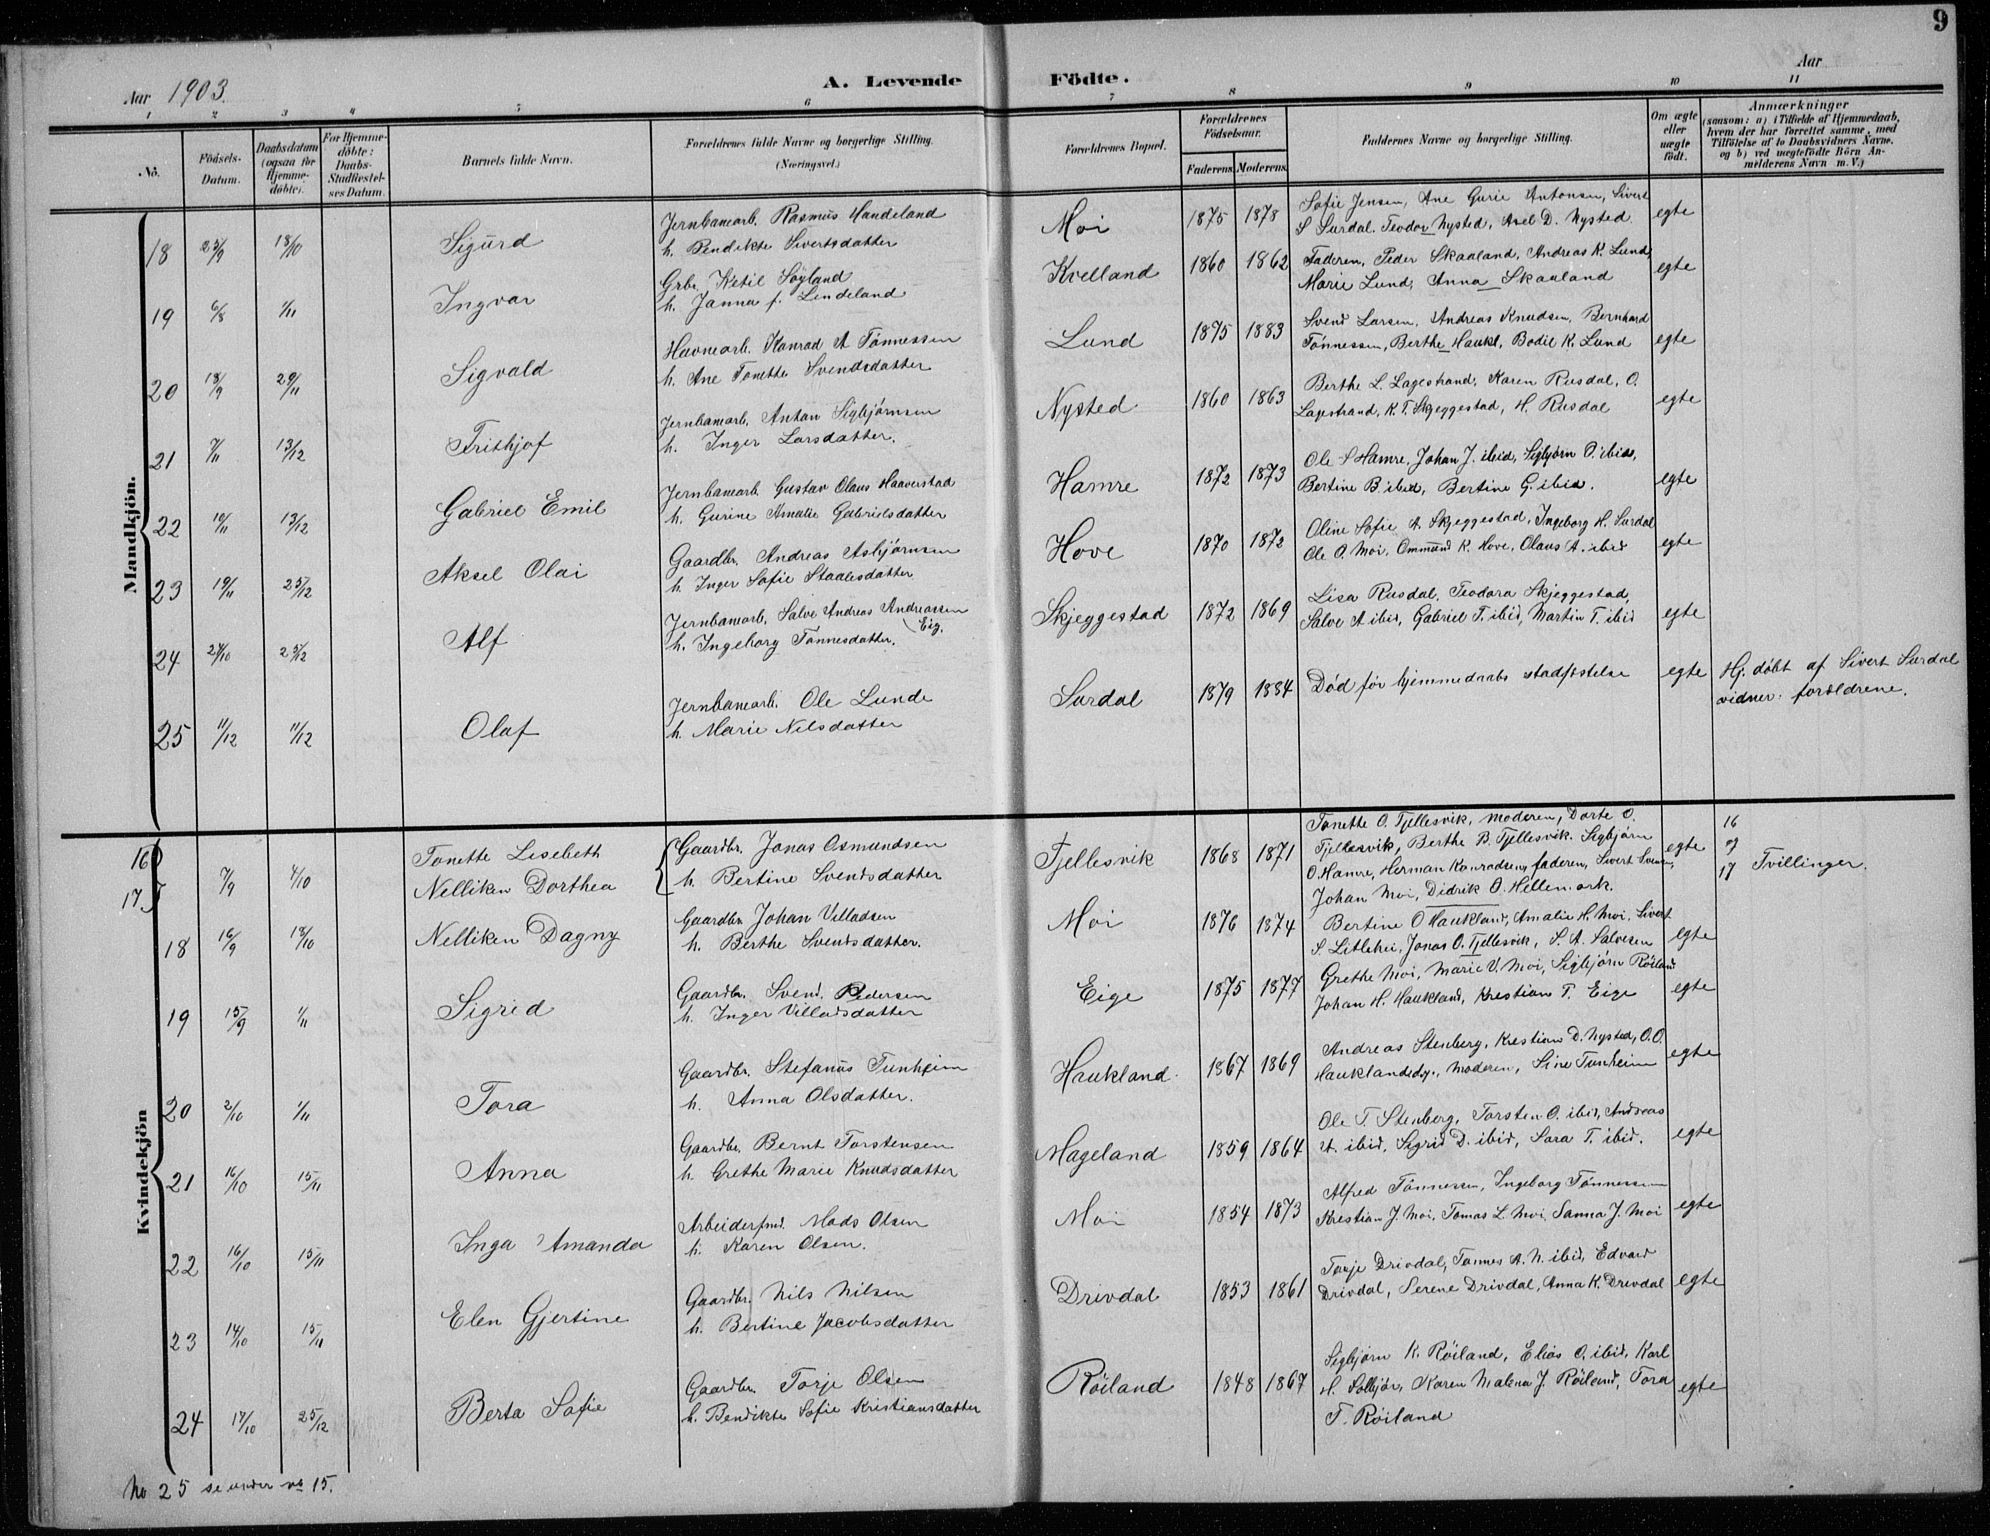 9
Aar 1903.
A. Levende Födte.
Aar
1 2 3 4 5 6 7 8 9 10 11
No.
Födsels-Datum.
Daabsdatum (ogsaa for Hjemme-döbte).
For Hjemme-döbte: Daabs-Stadfæstel-ses Datum.
Barnets fulde Navn.
Forældrenes fulde Navne og borgerlige Stilling. (Næringsvei.)
Forældrenes Bopæl.
Forældrenes Födselsaar.
Faderens. Moderens.
Faddernes Navne og borgerlige Stilling.
Om ægte eller uægte födt.
Anmærkninger (saasom: a) i Tilfælde af Hjemmedaab, hvem der har forrettet samme, med Tilföielse af to Daabsvidners Navne, og b) ved uægtefödte Börn An-melderens Navn m. V.)
Mandkjön.
18 23/9 18/10 Sigurd
Jernbanearb. Rasmus Handeland
h. Bendikte Sivertsdatter
Moi 1875 1878
Sofie Jensen, Ane Gurie Antonsen, Sivert
S Surdal. Teodor Nysted, Axel D. Nysted
egte
19 6/8 1/11 Ingvar
Grbr. Ketil Søyland
h. Janna f. Lindeland
Kvelland 1860 1862
Faderen, Peder Skaaland, Andreas K. Lund,
Marie Lund, Anna Skaaland
egte
20 18/9 29/11 Sigvald
Havnearb. Konrad A Tønnessen
h. Ane Tonette Svendsdatter
Lund 1875 1883
Svend Larsen, Andreas Knudsen, Bernhard
Tønnessen, Berthe Haukl, Bodil K. Lund
egte
21 7/11 13/12 Frithjof
Jernbanearb. Anton Sigbjørnsen
h. Inger Larsdatter.
Nysted 1860 1863
Berthe L. Lagestrand, Karen Rusdal, O.
Lagestrand, K. T. Skjeggestad, H. Rusdal
egte
22 10/11 13/12 Gabriel Emil
Jernbanearb. Gustav Olaus Haaverstad
h. Gurine Amalie Gabrielsdatter
Hamre 1872 1873
Ole S Hamre, Johan J. ibid, Sigbjørn O. ibid,
Bertine B. ibid, Bertine G. ibid.
egte
23 19/11 25/12 Aksel Olai
Gaardbr. Andreas Asbjørnsen
h. Inger Sofie Staalesdatter
Hove 1870 1872
Oline Sofie A. Skjeggestad, Ingeborg H. Surdal
Ole O. Moi, Ommund K. Hove, Olaus A. ibid
egte
24 24/10 25/12 Alf
Jernbanearb. Salve Andreas Andreassen
Eig.
h. Ingeborg Tønnesdatter.
Skjeggestad 1872 1869
Lisa Rusdal, Teodora Skjeggestad,
Salve A ibid, Gabriel T. ibid, Martin T. ibid
egte
25 11/12 11/12 Olaf
Jernbanearb. Ole Lunde
h. Marie Nilsdatter
Surdal 1879 1884
Død før hjemmedaabs stadfæstelse
egte
Hj. døbt af Sivert Surdal
vidner: forældrene.
Kvindekjön
16
17 7/9 4/10
Tonette Lisebeth
Nelliken Dorthea
Gaardbr. Jonas Osmundsen
h. Bertine Svendsdatter
Fjellesvik 1868 1871
Tonette O. Fjellesvik, moderen, Dorte O.
Fjellesvik, Berthe B. Fjellesvik. Sigbjørn
O Hamre, Herman Konradsen, faderen, Sivert Svens,
Johan Moi, Didrik O. Hellemork.
egte
16
og
17 Tvillinger.
18 16/9 18/10 Nelliken Dagny
Gaardbr. Johan Villadsen
h. Berthe Svendsdatter.
Moi 1876 1874
Bertine O Haukland, Amalie H. Moi, Sivert
S. Litlehei, Jonas O. Fjellesvik, S. A. Salvesen
egte
19 15/9 1/11 Sigrid
Gaardbr. Svend Pedersen
h. Inger Villadsdatter
Eige 1875 1877
Grethe Moi, Marie V. Moi, Sigbjørn Røiland
Johan H. Haukland, Kristian T. Eige
egte
20 2/10 1/11 Tora
Gaardbr. Stefanus Tunheim
h. Anna Olsdatter.
Haukland. 1867 1869
Andreas Stenberg, Kristian D. Nysted, O. O.
Hauklandsdy, moderen, Sine Tunheim
egte
21 16/10 15/11 Anna
Gaardbr. Bernt Torstensen
h. Grethe Marie Knudsdatter
Mageland 1859 1864
Ole T. Stenberg, Torsten O. ibid, Andreas
A. ibid, Sigrid D. ibid, Sara T. ibid.
egte
22 16/10 15/11 Inga Amanda
Arbeiderfmd. Mads Olsen
h. Karen Olsen.
Moi 1854 1873
Alfred Tønnessen, Ingeborg Tønnessen
Kristian J. Moi, Tomas L. Moi, Sanna J. Moi
egte
23 14/10 15/11 Elen Gjertine
Gaardbr. Nils Nilsen
h. Bertine Jacobsdatter
Drivdal 1853 1861
Torje Drivdal, Tønnes A. N. ibid, Edvard
Drivdal, Serene Drivdal, Anna K. Drivdal
egte
24 17/10 25/12 Berta Sofie
Gaardbr. Torje Olsen
h. Bendikte Sofie Kristiansdatter
Røiland 1848 1867
Sigbjørn K. Røiland, Elias O. ibid, Karl
H. Solbjør, Karen Malena J. Røiland, Tora
T. Røiland
egte
No 25 se under no 15.